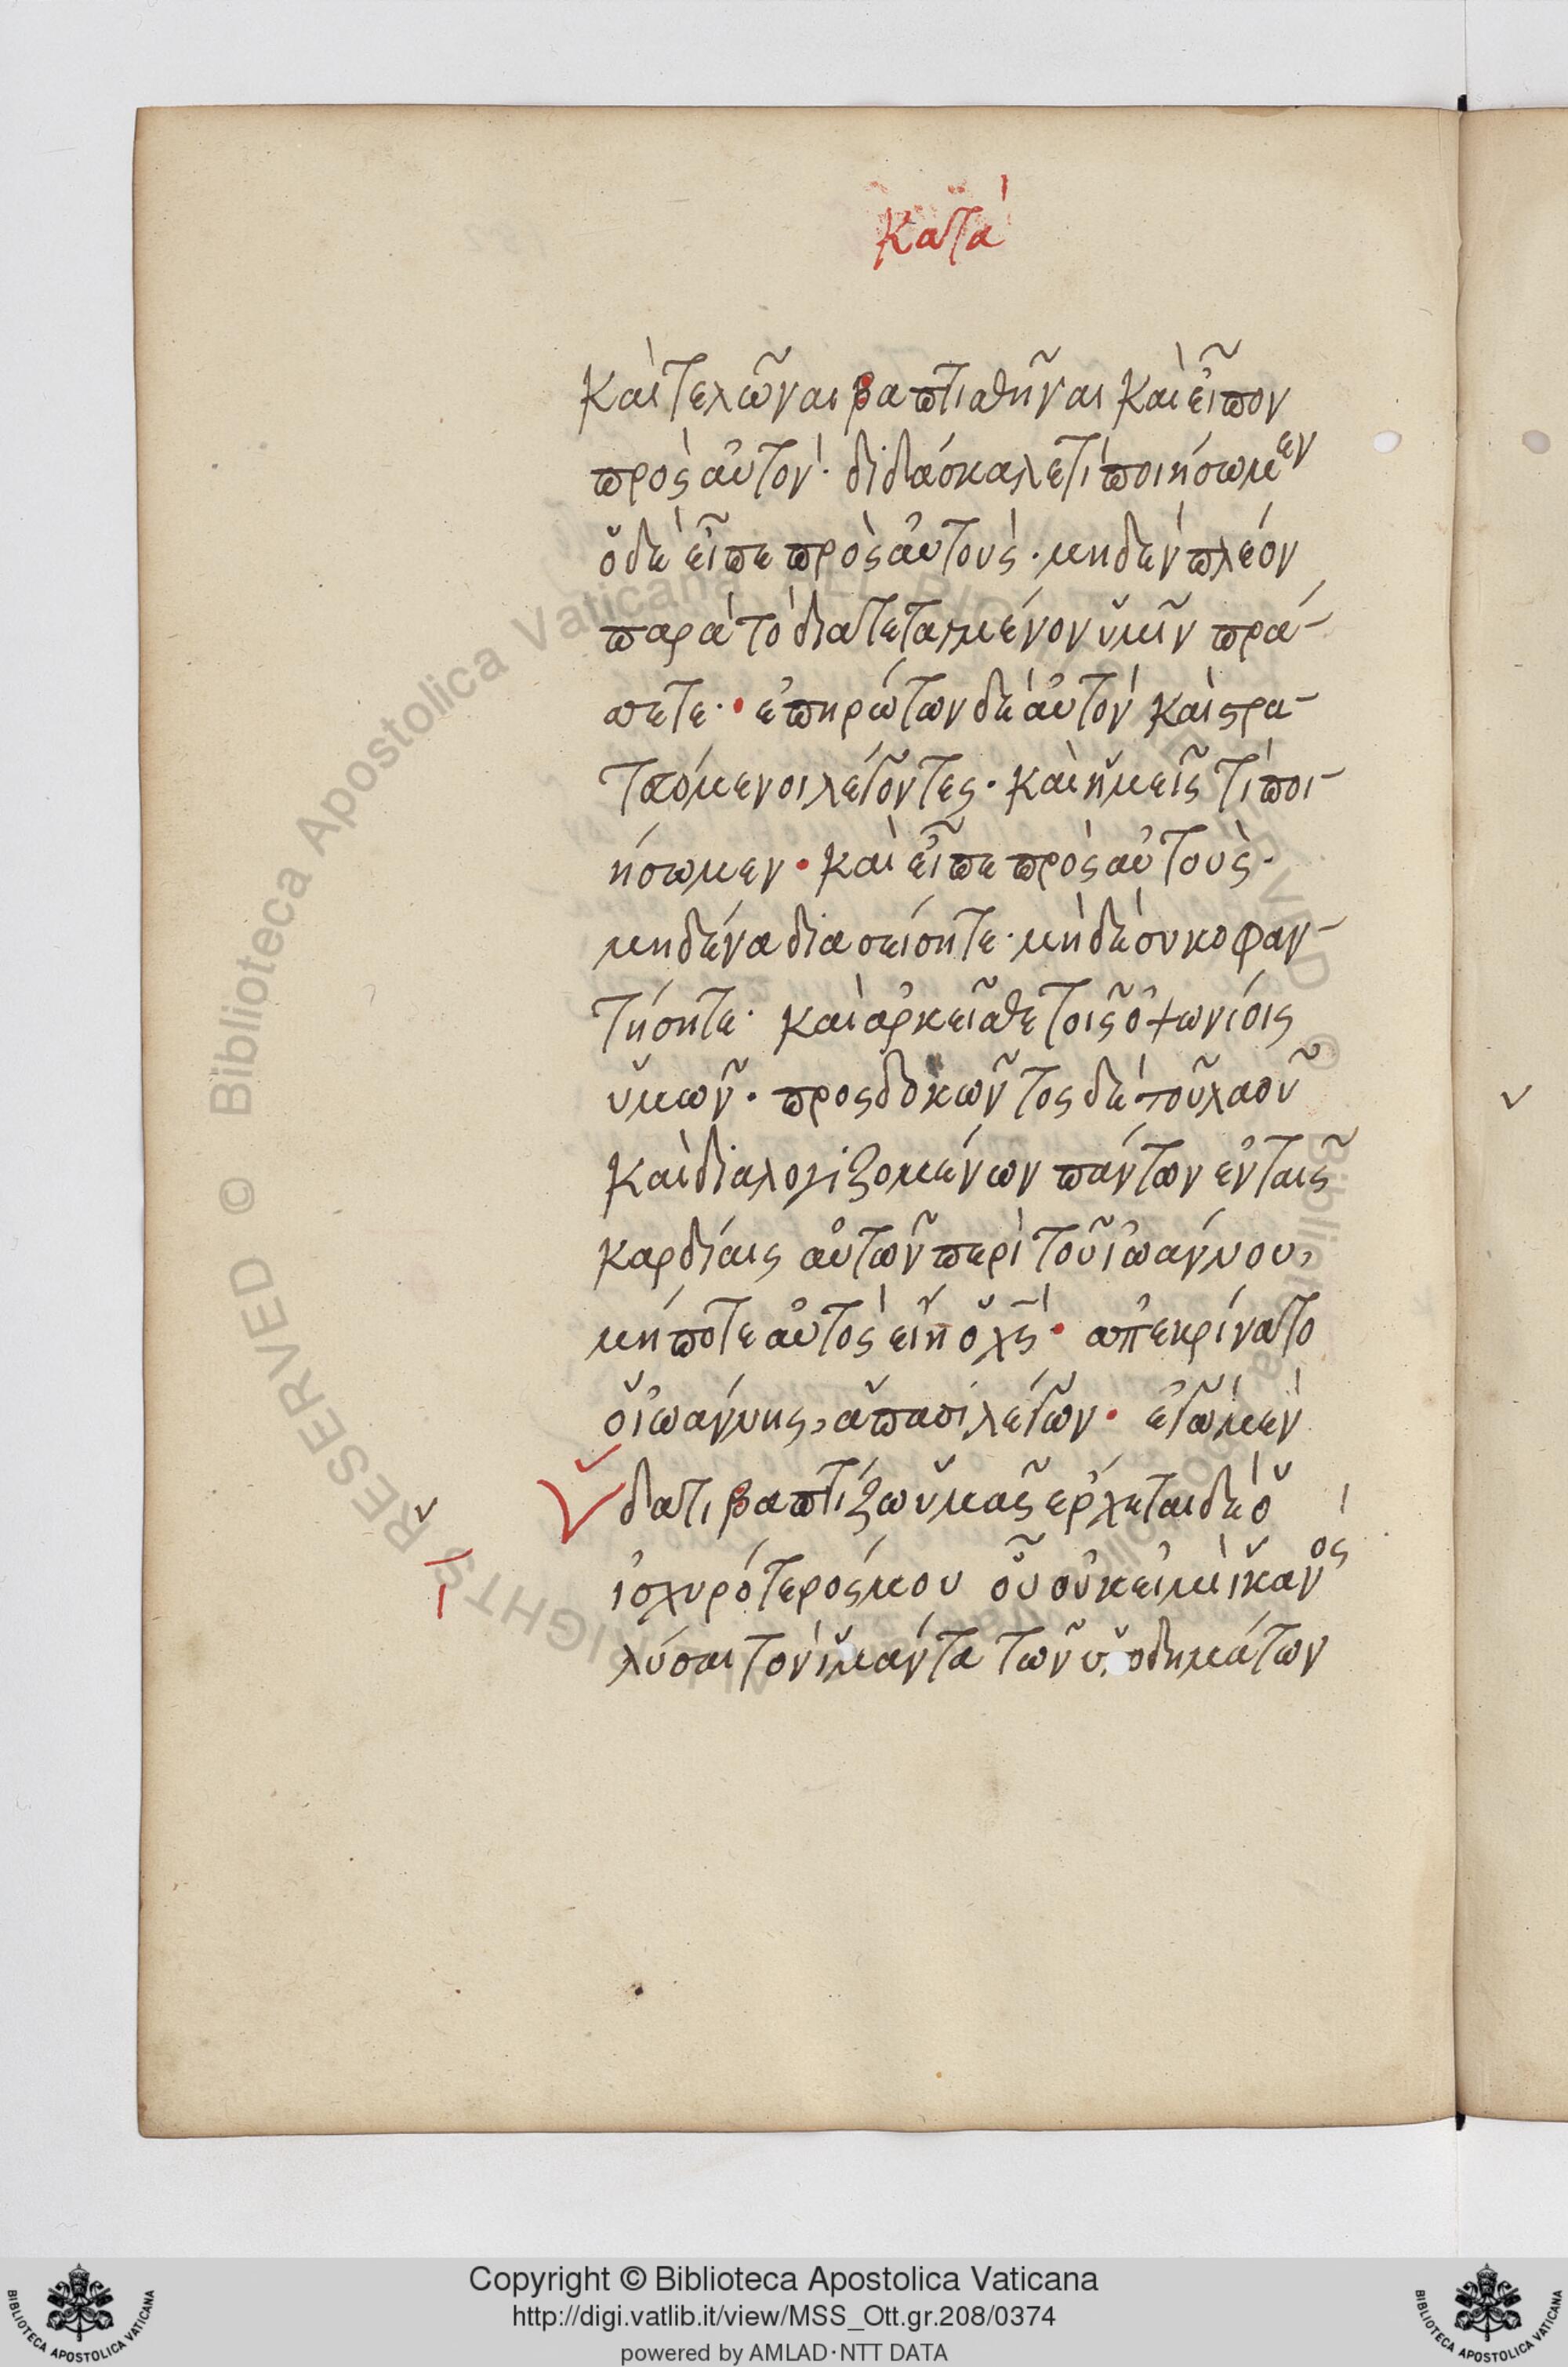 κατὰ
καὶ τελῶναι βαπτισθῆναι καὶ εἶπον
πρὸς αὐτὸν· διδάσκαλε τί ποιήσωμεν
ὁ δὲ εἶπε πρὸς αὐτοὺς· μηδὲν πλέον
παρὰ τὸ διατεταγμένον ὑμῖν πρά-
σσετε· ἐπηρώτων δὲ αὐτὸν καὶ στρα-
τευόμενοι λέγοντες· καὶ ἡμεῖς τί ποι-
ήσωμεν· καὶ εἶπε πρὸς αὐτοὺς·
μηδένα διασείσητε· μὴ δὲ συκοφαν-
τήσητε· καὶ ἀρκεῖσθε τοῖς ὀψωνίοις
ὑμῶν· προςδοκῶντος δὲ τοῦ λαοῦ
καὶ διαλογιζομένων πάντων ἐν ταῖς
καρδίαις αὐτῶν περὶ τοῦ ἰωάννου,
μήποτε αὐτὸς εἴη ὁ χς· ἀπεκρίνατο
ὁ ἰωάννης, ἅπασι λέγων· ἐγὼ μὲν
ὕδατι βαπτίζω ὑμᾶς ἔρχεται δὲ ὁ
ἰσχυρότερός μου οὗ οὐκ εἰμὶ ἱκανὸς
λύσαι τὸν ἱμάντα τῶν ὑποδημάτων
© Biblioteca Apostolica Vaticana ALL RIGHTS RESERVED
Copyright © Biblioteca Apostolica Vaticana
http://digi.vatlib.it/view/MSS_Ott.gr.208/0374
powered by AMLAD·NTT DATA
BIBLIOTECA APOSTOLICA VATICANA
BIBLIOTECA APOSTOLICA VATICANA